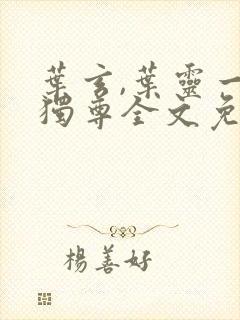 葉玄,葉靈一
獨尊全文免
楊善好